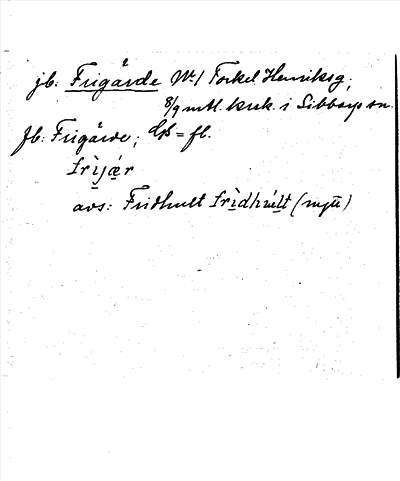 jb: Frigårde No 1 Torkel Henriksg;
8/9 mtl. krsk. i Sibbarp sn.
fb: Frigårde; Ek = fl.
frìjár
avs: Fridhult frìdhu̇lt (nyu)